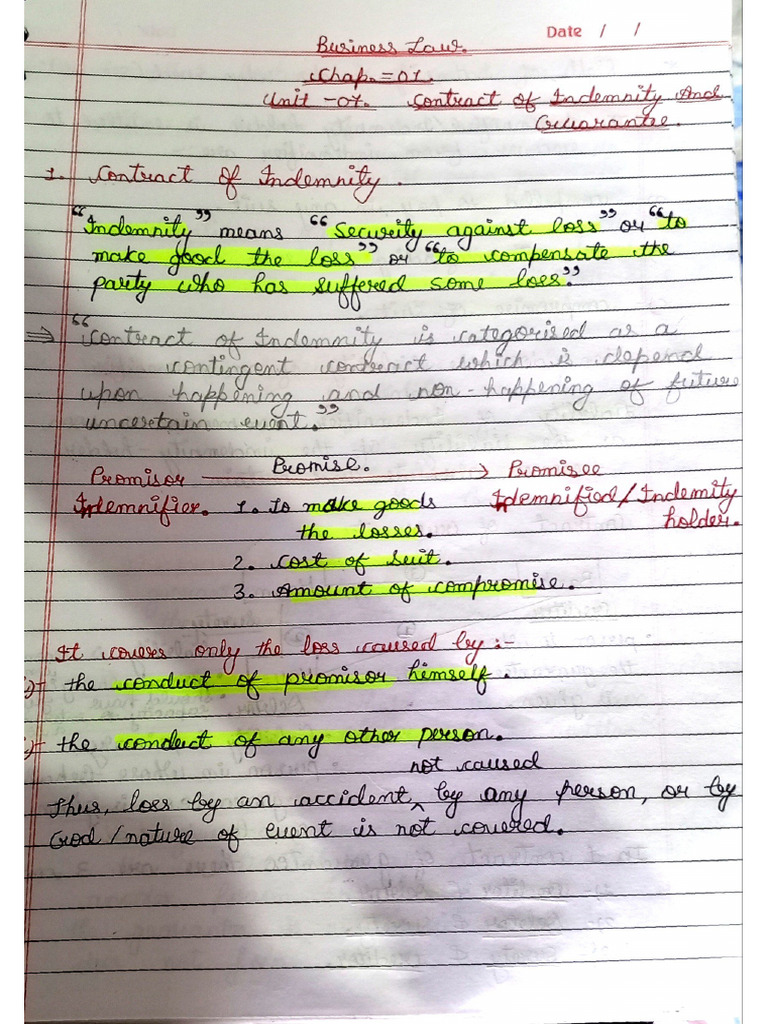 Date / /
Business Law.
Chap. = 07.
Unit - 07. Contract of Indemnity And
Guarantee.
1. Contract of Indemnity.
"Indemnity" means "Security against loss" or "to
make good the loss" or "to compensate the
party who has suffered some loss."
⇒ "Contract of Indemnity is categorised as a
contingent contract which is depend
upon happening and non-happening of future
uncertain event."
Promise.
Promisor → Promisee
Idemnifier. 1. To make goods Idemnified/Indemity
the losses. holder.
2. Cost of Suit.
3. Amount of compromise.
It covers only the loss caused by :-
the conduct of promisor himself.
the conduct of any other person.
not caused
Thus, loss by an accident, ^ by any person, or by
God/nature of event is not covered.